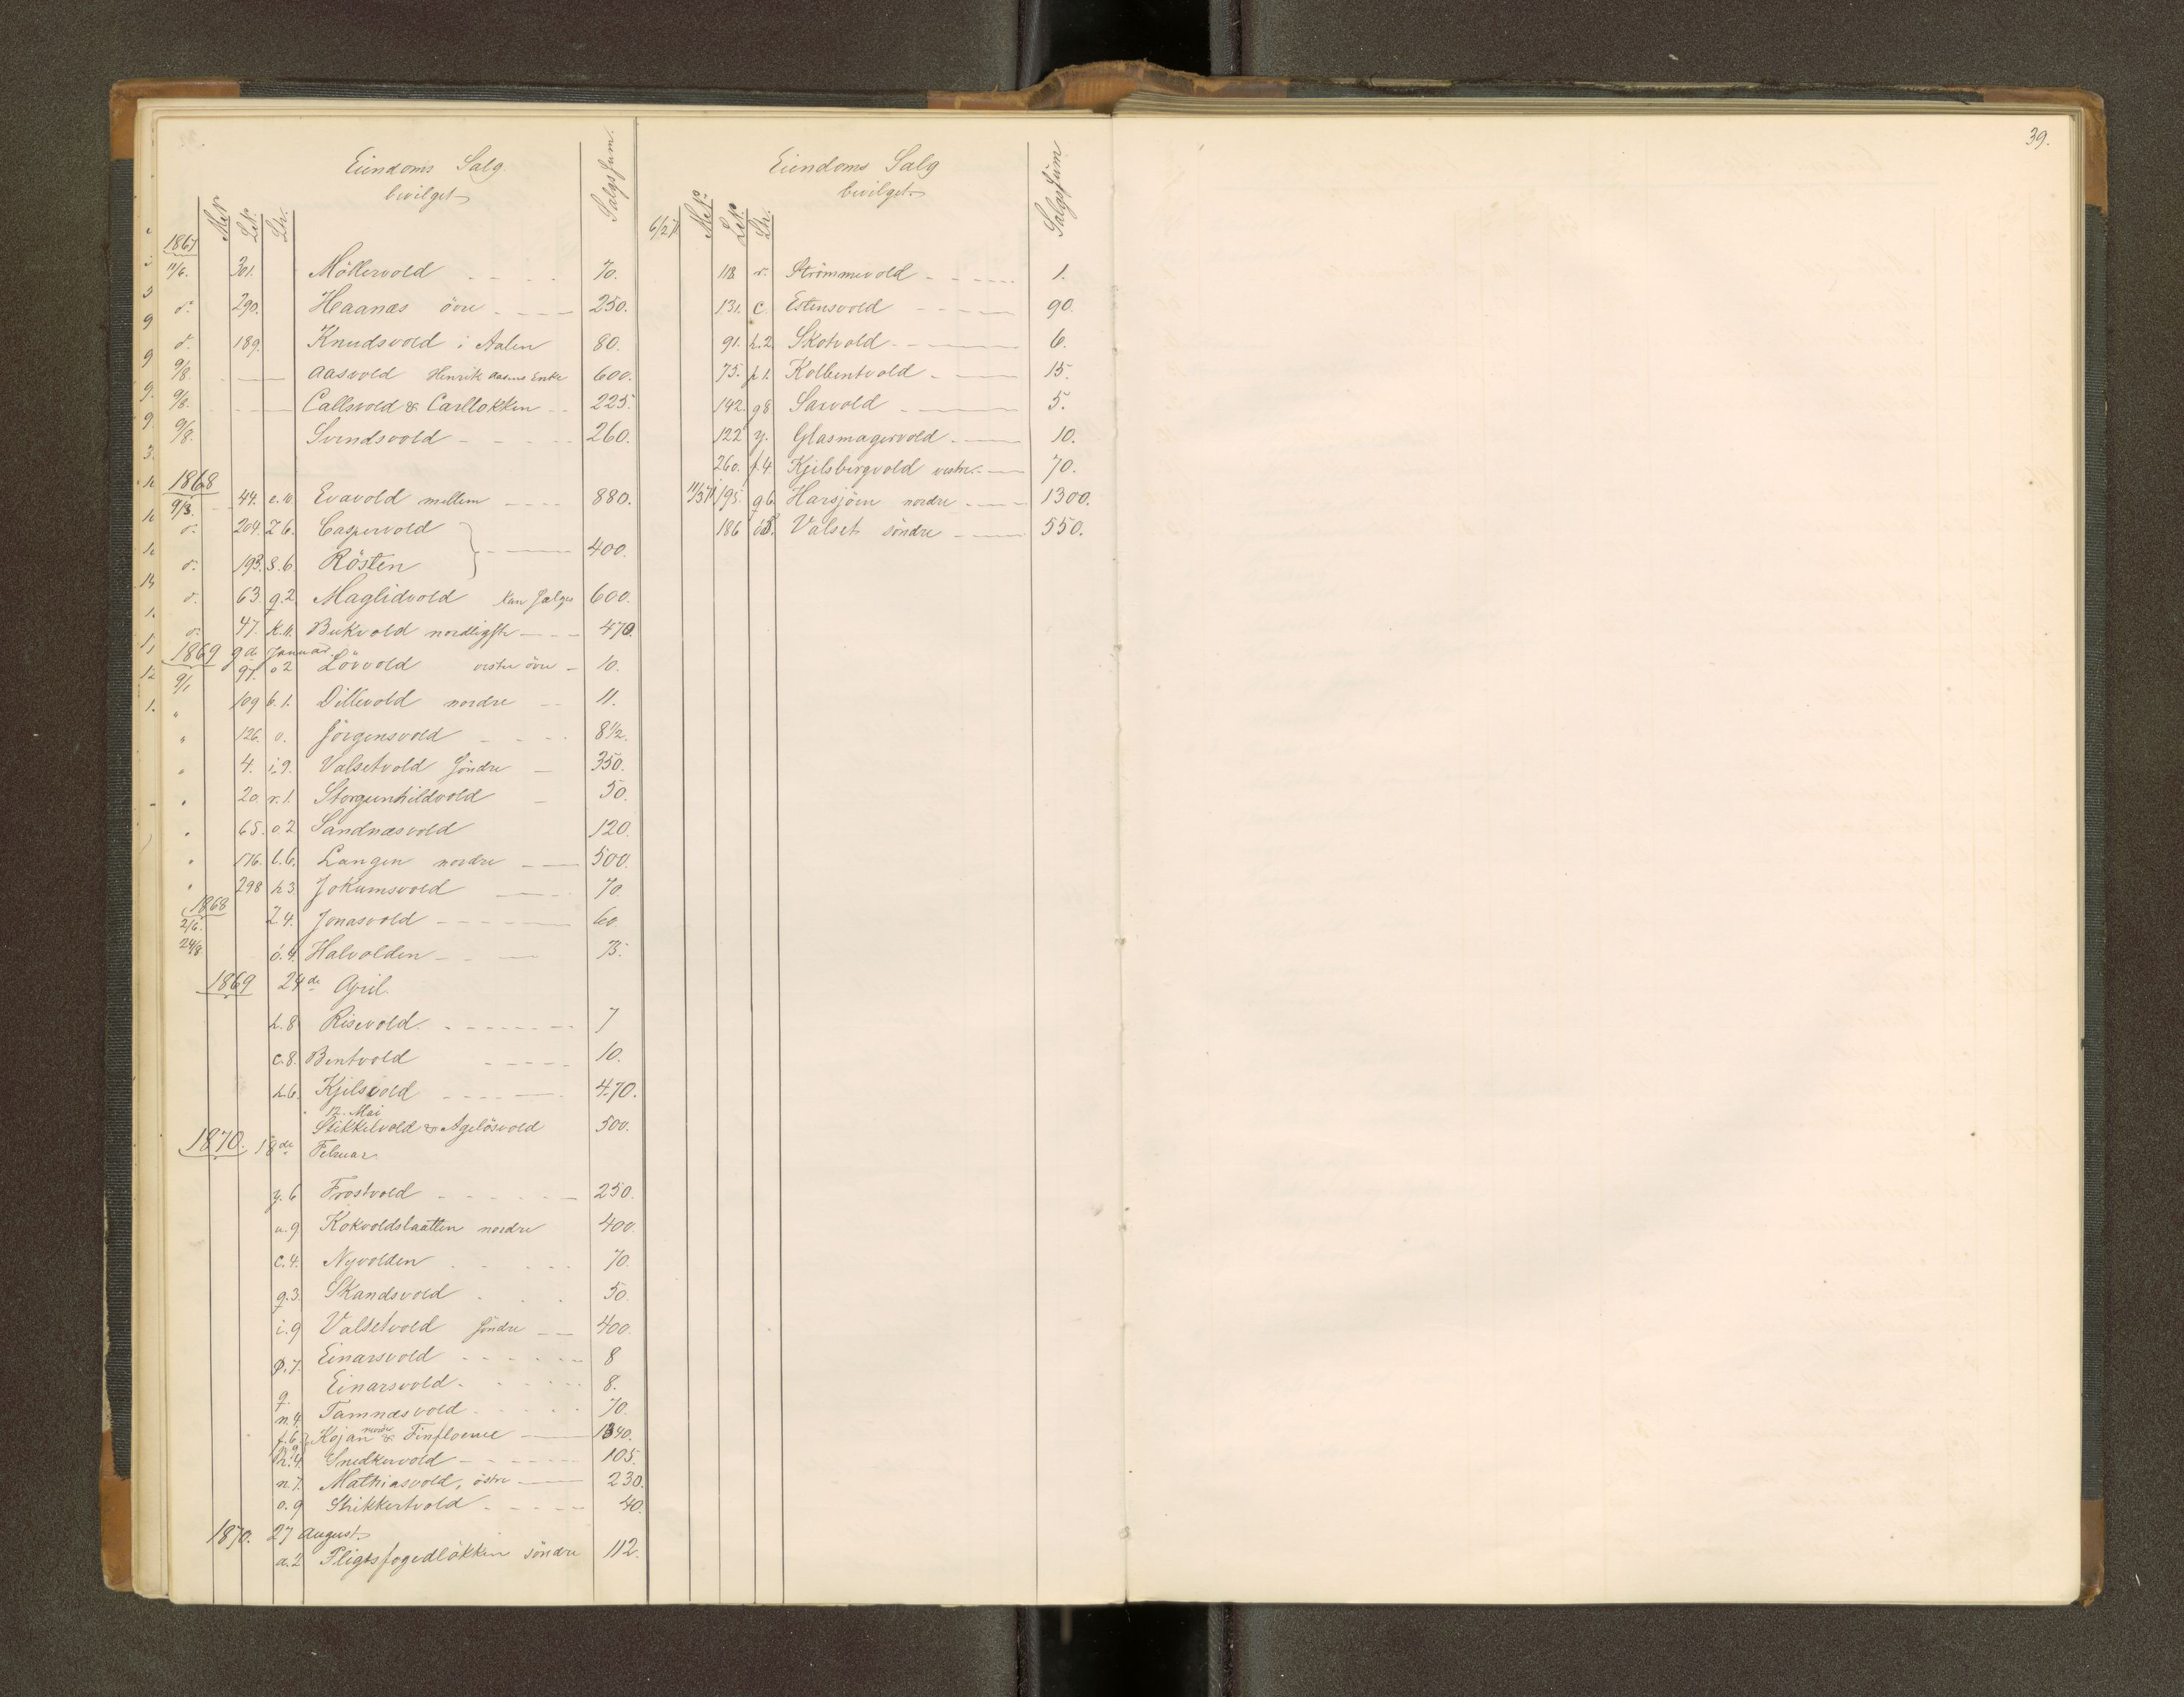 Eiendoms Salg
bevilget
M.N. L.N. Ltr. Salgs Sum.
1867
11/6. 301. Möllervold 70.
d: 290. Heaanæs övre 250.
d: 189. Knudsvold i Aalen 80.
9/8. Aasvold Henrik Aasens Enke 600.
9/8. Callsvold & Carlløkken 225.
9/8. Svendsvold 260.
1868
9/3. 44. e.10 Evavold mellem 880.
d: 204. Z 6. Caspervold
d: 193. S.6. Rösten 400.
d: 63. q.2 Maglidvold kan Sælges 600.
d: 47. k.11. Bukvold nordligste 470.
1869 9de Januar.
9/1 97. o 2 Lövvold vestre övre 10.
" 109 b.1. Dillevold nordre 11.
" 126. v. Jörgensvold 8 1/2.
" 4. i.9. Valsetvold Söndre 350.
" 20. r.1. Storgunhildvold 50.
" 65. o.2 Sandnæsvold 120.
" 176. l.6. Langen nordre 500.
" 298 h 3. Jokumsvold 70.
1868
2/6. Z 4. Jonasvold 60.
24/8. ö.4. Halvolden 75.
1869 24de April.
h.8 Risevold 7
c.8. Bentvold 10.
h.6. Kjilsvold 470.
12. Mai
Stikkelvold & Agilösvold 500.
1870. 18de Februar.
y.6 Frostvold 250.
u.9 Kokvoldslaatten nordre 400.
c.4. Nyvolden 70.
q.3. Skandsvold 50.
i.9 Valsetvold Söndre 400.
p.7. Einarsvold 8
q. Einarsvold 8.
n.4. Tamnæsvold 70.
f.6 Kojan nordre & Finfloene 1340.
h.4. Snedkervold 105.
n.7. Mathiasvold, östre 230.
o.9 Strikkertvold 40.
1870. 27 August
a.2 Pligtsfogedlökken söndre 112.
Eiendoms Salg
bevilget
6/2 71 M.N. L.N. Ltr. Salgs Sum
118. r. Strömmevold 1.
131. c. Estensvold 90.
91. h.2 Skotvold 6.
75. p 1. Kolbentvold 15.
142. g 8 Sarvold 5.
122 y. Glasmagervold 10.
260. f.4. Kjelsbergvold vestre 70.
11/3 71 195. g 6 Harsjöen nordre 1300.
186 Valset söndre 550.
39.